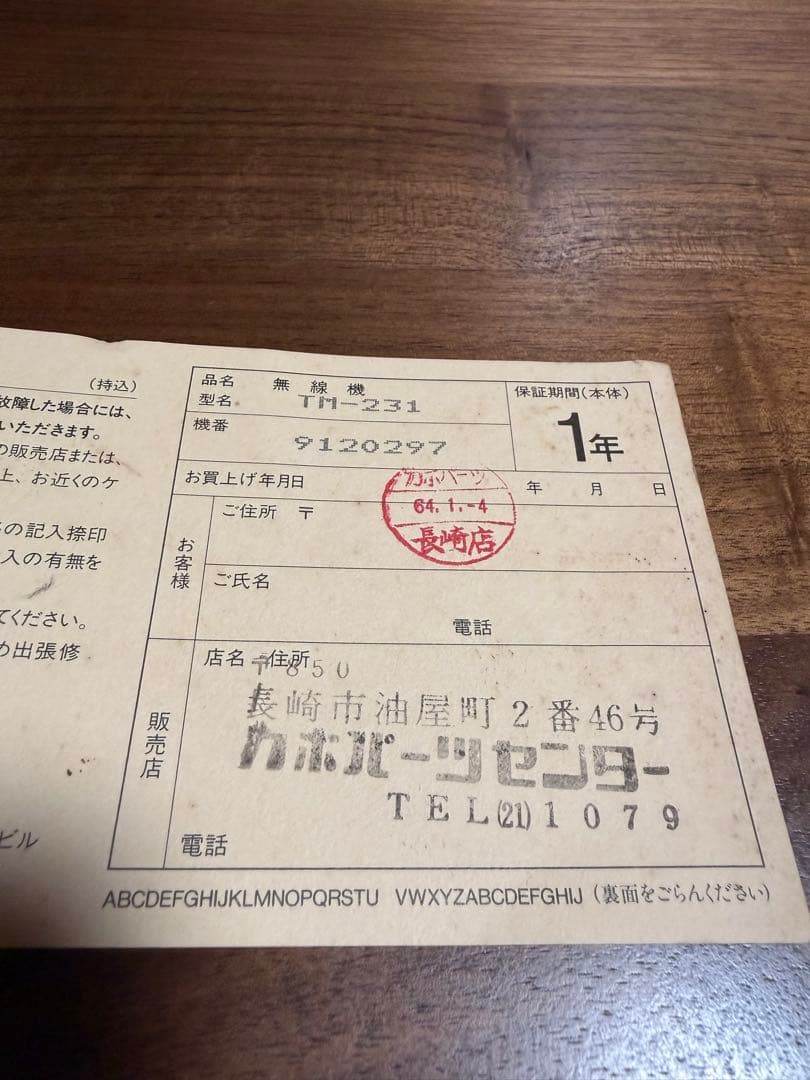 (持込)
故障した場合には、
いただきます。
の販売店または、
上、お近くのケ
の記入捺印
入の有無を
てください。
め出張修
ビル
品名 無線機
型名 TM-231
保証期間(本体)
1年
機番 9120297
お買上げ年月日 年 月 日
カホパーツ
64.1.-4
長崎店
お客様
ご住所 〒
ご氏名
電話
販売店
店名・住所
〒850
長崎市油屋町2番46号
カホパーツセンター
TEL(21)1079
電話
ABCDEFGHIJKLMNOPQRSTU VWXYZABCDEFGHIJ (裏面をごらんください)